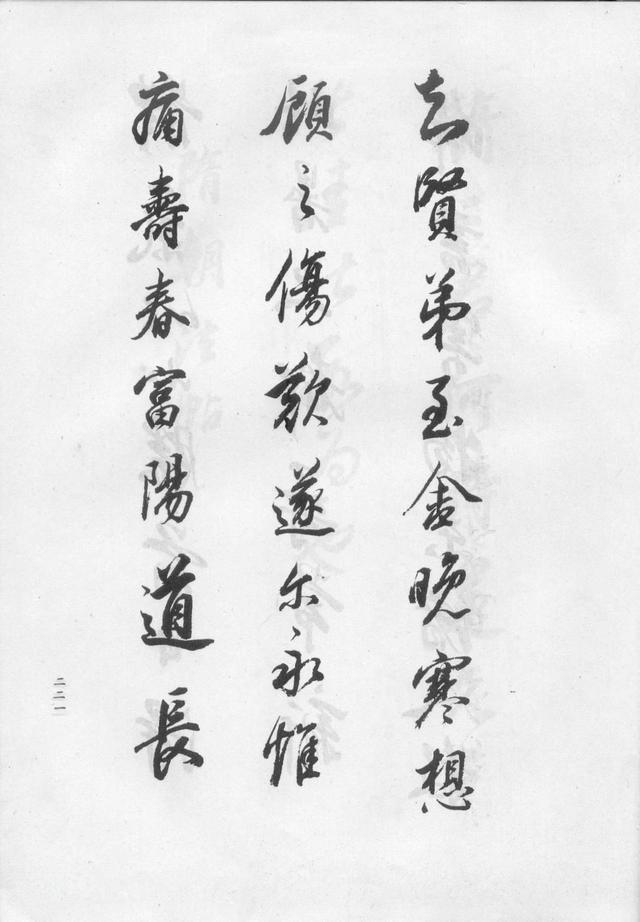 知賢弟至金晚寒想
顧之傷歎遂尔永惟
痛壽春富陽道長
二二一